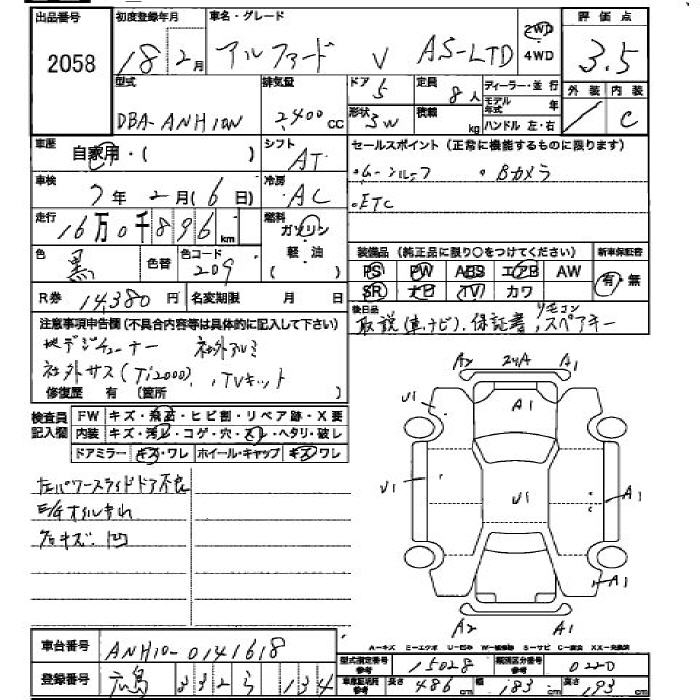 出品番号 初度登録年月 車名・グレード 評価点
2058 18 2月 アルファード V AS-LTD 2WD ・ 4WD 3.5
型式 排気量 ドア 5 定員 8人 ディーラー・並行 外装 内装
DBA-ANH10W 2,400cc 形状 3W 積載 kg モデル年式 年 ハンドル 左・右 / C
車歴 自家用・( ) シフト AT セールスポイント(正常に機能するものに限ります)
車検 7年2月(6日) 冷房 AC ・ムーンルーフ ・Bカメラ
・ETC
走行 16万0千896km 燃料 ガソリン
軽・油
( )
色 黒 色替 色コード 209 装備品(純正品に限り○をつけてください) 新車保証書
PS PW ABS エアB AW 有・無
SR ナビ TV カワ
R券 14,380円 名変期限 月 日 後日品 取説(車,ナビ).保証書,リモコン スペアキー
注意事項申告欄(不具合内容等は具体的に記入して下さい)
地デジチューナー 社外アルミ
社外サス(Ti2000),TVキット
修復歴 有(箇所 )
検査員記入欄 FW キズ・飛石・ヒビ割・リペア跡・X要
内装 キズ・汚れ・コゲ・穴・スレ・ヘタリ・破レ
ドアミラー キズ・ワレ ホイール・キャップ キズ・ワレ
左パワースライドドア不良
E/Gオイルもれ
キズ・凹
A2 24A A1
U1 A1
U1 U1 A1
A1
A2 A1
A-キズ E-エクボ U-凹み W-補修跡 S-サビ C-腐食 XX-交換済
車台番号 ANH10-0141618
型式指定番号 参考 15028 類別区分番号 参考 0220
登録番号 広島 332 ら 134
車庫証明用 参考 長さ 486cm 幅 183cm 高さ 193cm